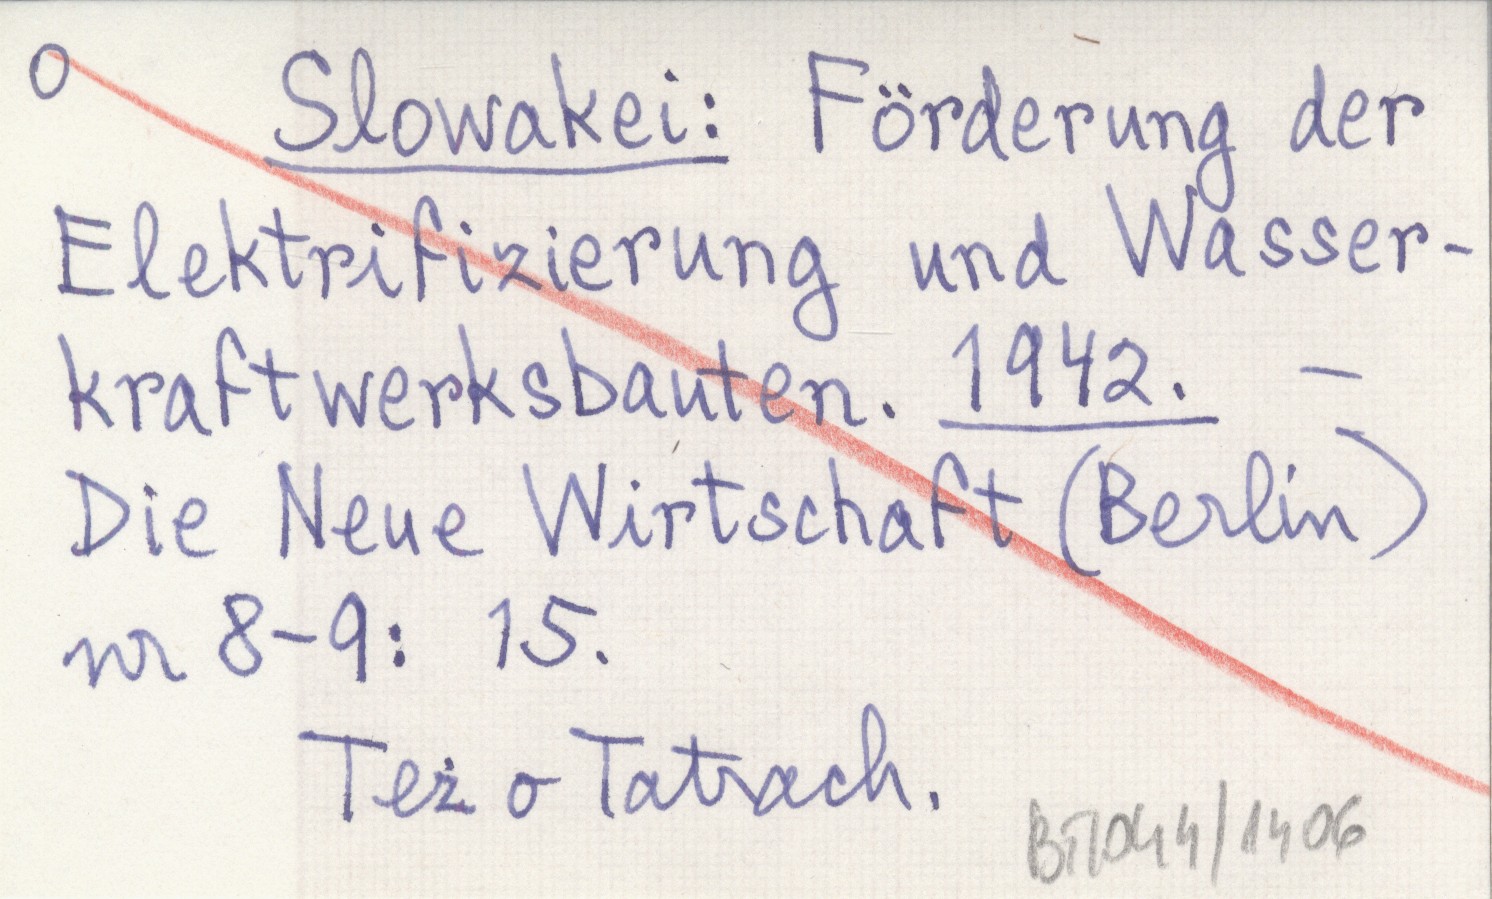 O Slowakei: Förderung der
Elektrifizierung und Wasser-
kraftwerksbauten. 1942. –
Die Neue Wirtschaft (Berlin)
nr 8-9: 15.
Też o Tatrach.